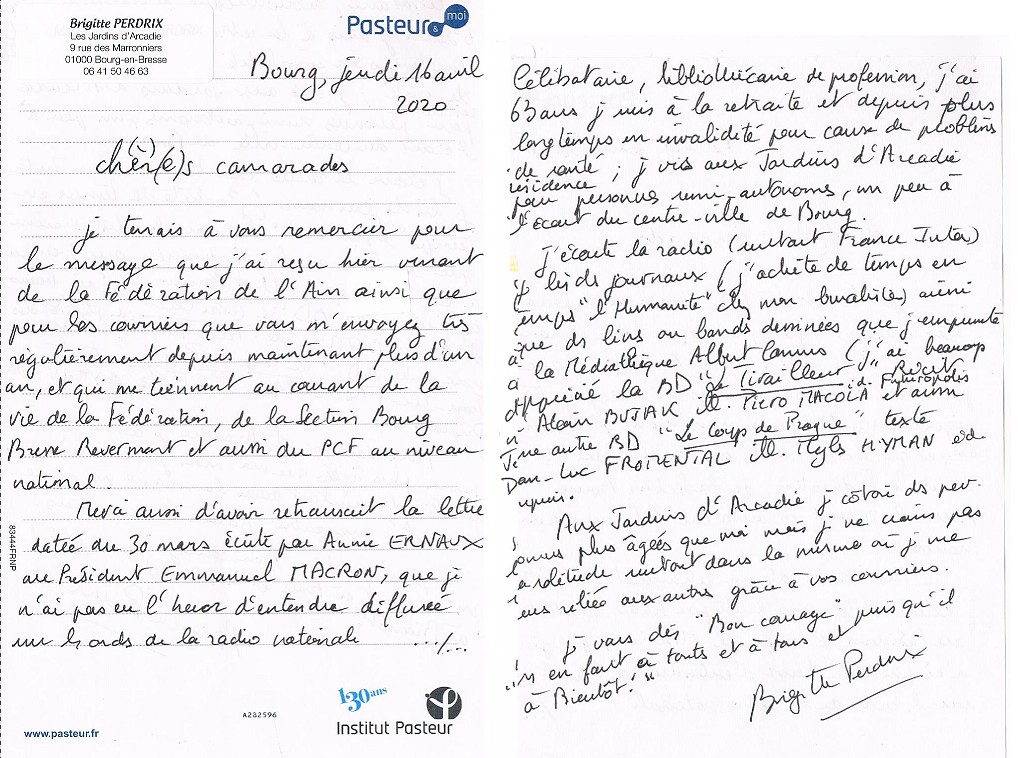 Brigitte PERDRIX
Les Jardins d'Arcadie
9 rue des Marronniers
01000 Bourg-en-Bresse
06 41 50 46 63
Pasteur & moi
Bourg, jeudi 16 avril
2020
chèr(e)s camarades
(i)
je tenais à vous remercier pour
le message que j'ai reçu hier venant
de la Fédération de l'Ain ainsi que
pour les courriers que vous m'envoyez très
régulièrement depuis maintenant plus d'un
an, et qui me tiennent au courant de la
vie de la Fédération, de la Section Bourg
Bresse Revermont et aussi du PCF au niveau
national.
Merci aussi d'avoir retranscrit la lettre
datée du 30 mars écrite par Annie ERNAUX
au Président Emmanuel MACRON, que je
n'ai pas eu l'heur d'entendre diffusée
sur les ondes de la radio nationale .../...
83444FRNP
130 ans
A282596
Institut Pasteur
www.pasteur.fr
Célibataire, bibliothécaire de profession, j'ai
63 ans je suis à la retraite et depuis plus
longtemps en invalidité pour cause de problèmes
de santé ; je vis aux Jardins d'Arcadie
résidence
pour personnes semi-autonomes, un peu à
l'écart du centre-ville de Bourg.
J'écoute la radio (surtout France Inter)
je lis ds journaux (j'achète de temps en
temps "l'Humanité" chez mon buraliste) ainsi
que ds livres ou bandes dessinées que j'emprunte
à la Médiathèque Albert Camus (j'ai beaucoup
apprécié la BD "Le Tirailleur" Récit
d'Alain BUJAK ill. Piero MACOLA éd. Futuropolis et aussi
une autre BD "Le Coup de Prague" texte
Jean-Luc FROMENTAL ill. Myles HYMAN éd.
Dupuis.
Aux Jardins d'Arcadie je côtoie ds per-
sonnes plus âgées que moi mais je ne crains pas
la solitude surtout dans la mesure où je me
sens reliée aux autres grâce à vos courriers.
Je vous dis "Bon courage" puisqu'il
"s'en faut à toutes et à tous et
à Bientôt !"
Brigitte Perdrix